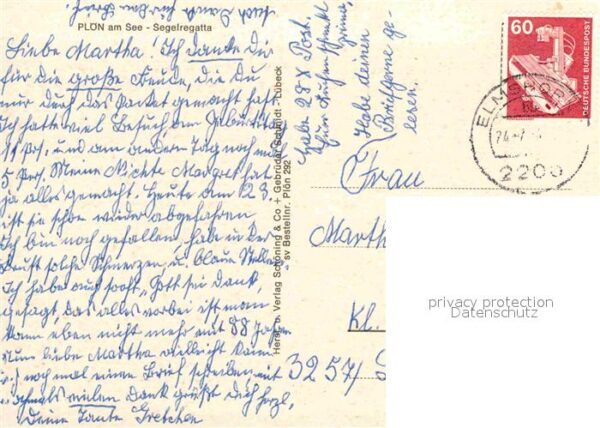 PLÖN am See - Segelregatta
Liebe Martha! Ich danke Dir
für die große Freude, die Du
nur durch das Packet gemacht hast
Ich hatte viel Besuch am Geburtstag
Pers. und am andern Tag noch mal
5 Pers. Meine Nichte Margret hat
ja alles gemacht. Heute am 12 8.
ist sie schon wieder abgefahren
Ich bin noch gefallen, hab in der
Brust solche Schmerzen u. blaue Stellen
Ich habe auch gott sei Dank,
gesagt das alles vorbei ist man
kann eben nicht mehr mit 88 Jahren
Nun liebe Martha vielleicht kann
noch mal einen Brief schreiben mit
nochmals vielen Dank grüßt Dich herzl.
Deine Tante Gretchen
Herst. u. Verlag Schöning & Co + Gebrüder Schmidt - Lübeck
sv Bestellnr. Plön 292
habe 28 X Post.
Habe deinen
Brief gerne ge-
lesen.
60
DEUTSCHE BUNDESPOST
ELMSHORN
2200
Frau
Martha
Kl.
3257/
privacy protection
Datenschutz